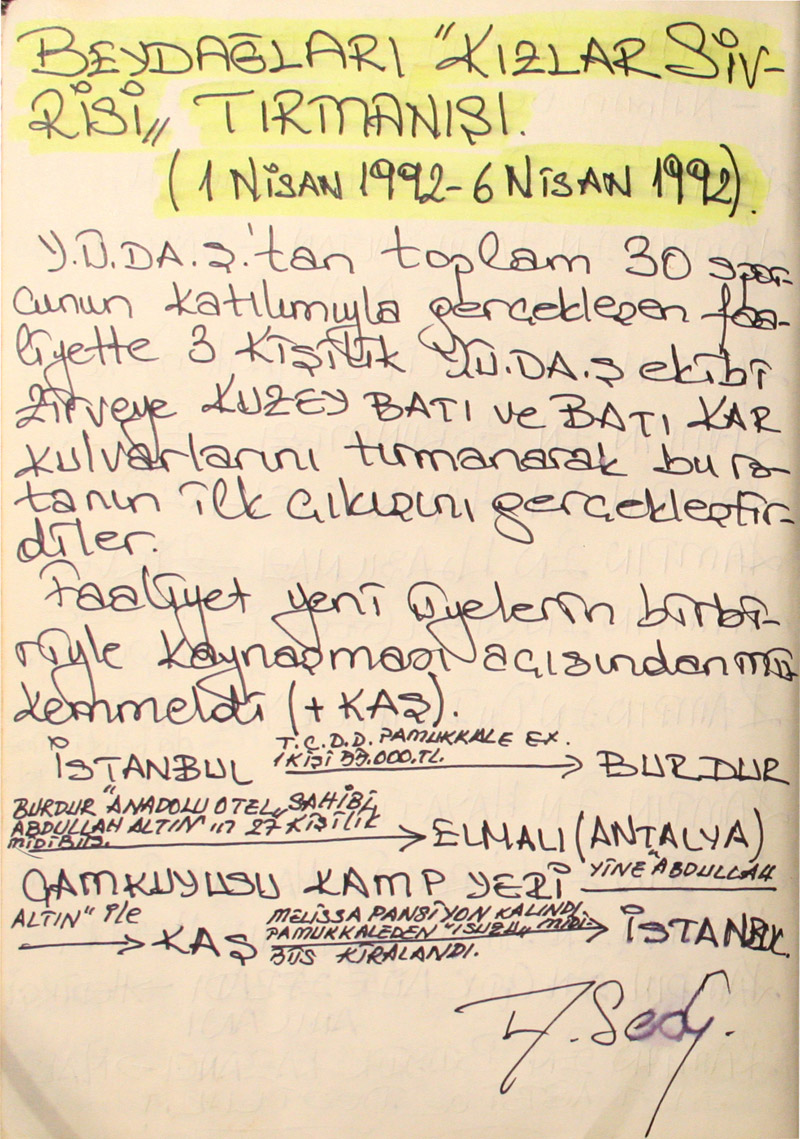 BEYDAĞLARI "KIZLAR SİV-
RİSİ" TIRMANIŞI.
(1 NİSAN 1992-6 NİSAN 1992).
Y.Ü.DA.Ş.'tan toplam 30 spor-
cunun katılımıyla gerçekleşen faa-
liyette 3 kişilik Y.Ü.DA.Ş ekibi
zirveye KUZEY BATI ve BATI KAR
kulvarlarını tırmanarak bu ro-
tanın ilk çıkışını gerçekleştir-
diler.
Faaliyet yeni üyelerin birbi-
riyle kaynaşması açısından mü-
kemmeldi (+ KAŞ).
T.C.D.D. PAMUKKALE EX.
İSTANBUL 1 KİŞİ 33.000.TL. → BURDUR
BURDUR "ANADOLU OTEL" SAHİBİ
ABDULLAH ALTIN'ın 27 KİŞİLİK
MİDİBÜS. → ELMALI (ANTALYA)
ÇAMKUYUSU KAMP YERİ YİNE "ABDULLAH
ALTIN" ile → KAŞ MELİSSA PANSİYON KALINDI
PAMUKKALEDEN "ISUZU" MİDİ- → İSTANBUL.
BÜS KİRALANDI.